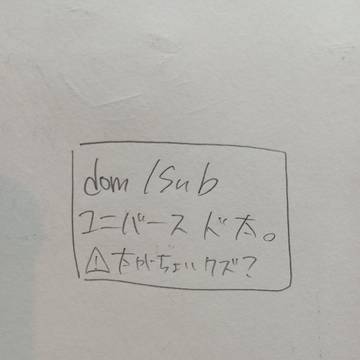 dom/sub
ユニバース ド太。
⚠太がちょいクズ?